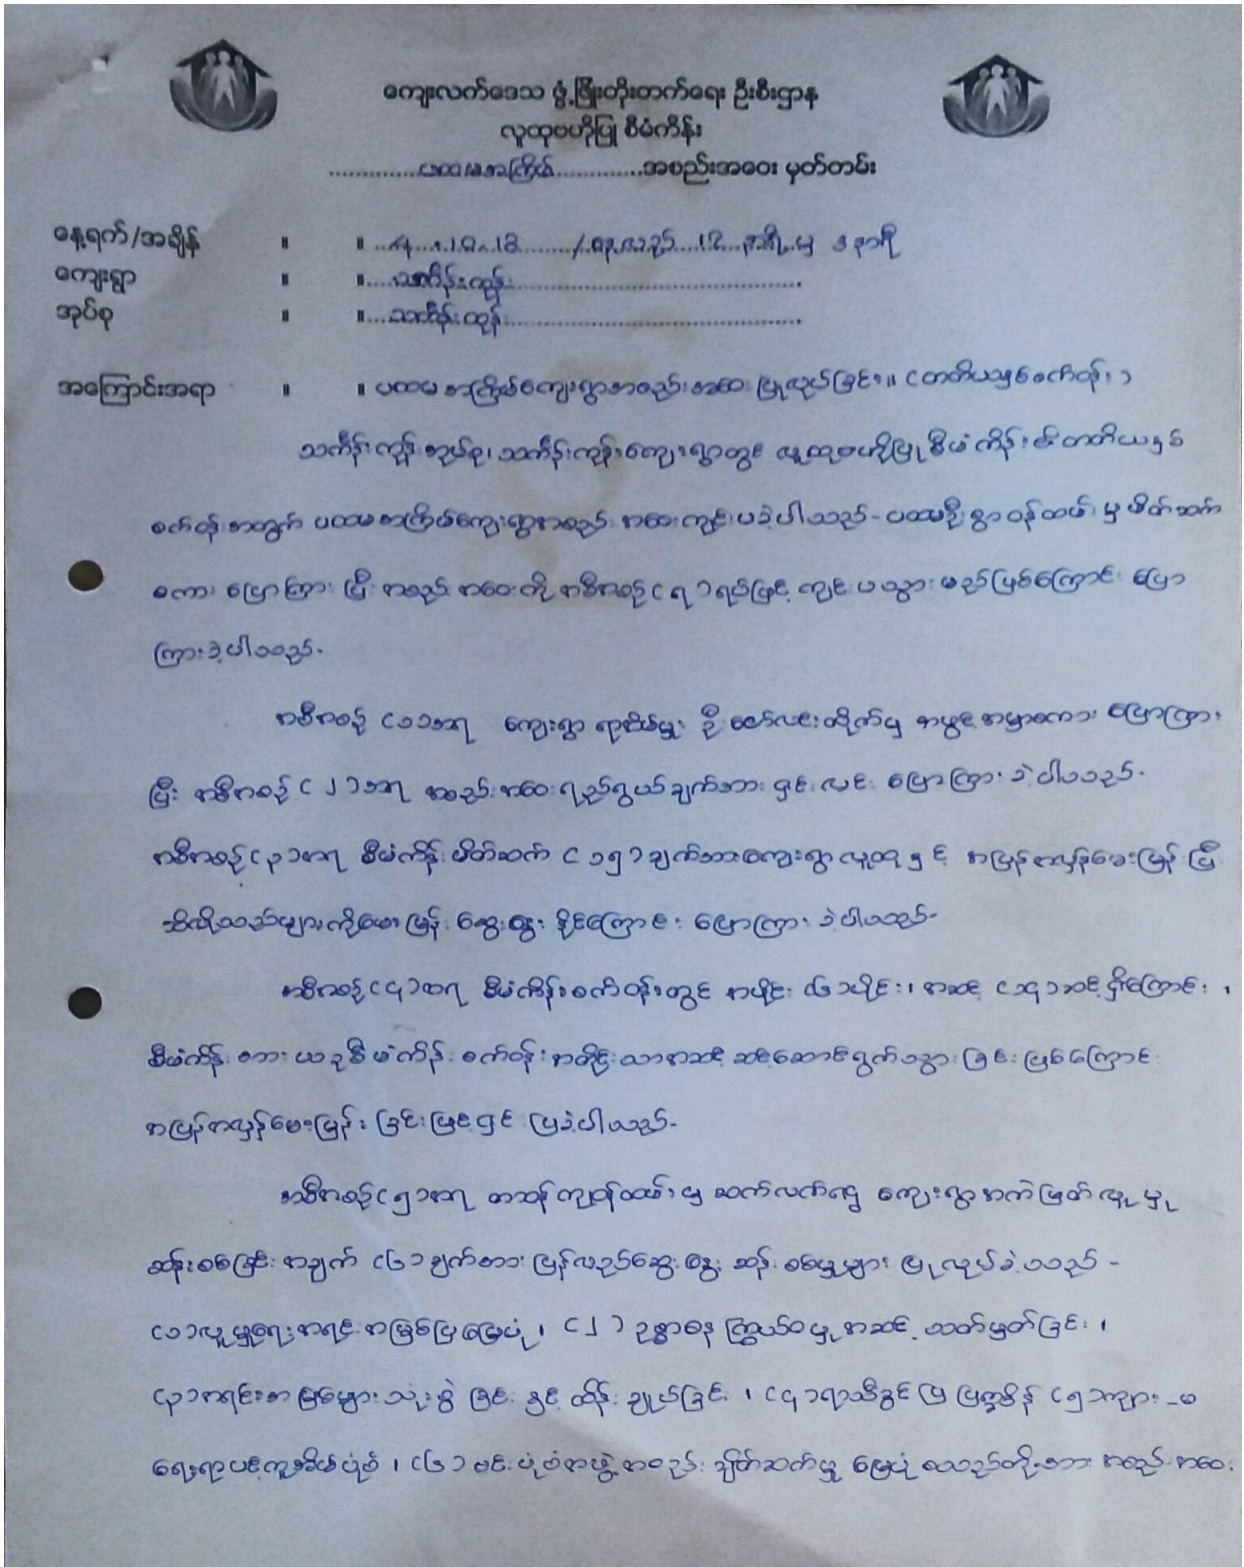 ကျေးလက်ဒေသ ဖွံ့ဖြိုးတိုးတက်ရေး ဦးစီးဌာန
လူထုဗဟိုပြု စီမံကိန်း
.............ပထမအကြိမ်.............အစည်းအဝေး မှတ်တမ်း
နေ့ရက်/အချိန် ။ ။ ... .10.18......../နေ့လည် 12 နာရီ မှ ၃ နာရီ
ကျေးရွာ ။ ။....သင်္ကန်းကျွန်း......................................
အုပ်စု ။ ။....သင်္ကန်းကျွန်း......................................
အကြောင်းအရာ ။ ။ ပထမအကြိမ်ကျေးရွာအစည်းအဝေး ပြုလုပ်ခြင်း။ (တတိယနှစ်စက်ဝန်း)
သင်္ကန်းကျွန်းအုပ်စု၊ သင်္ကန်းကျွန်းကျေးရွာတွင် လူထုဗဟိုပြုစီမံကိန်း၏ တတိယနှစ်
စက်ဝန်းအတွက် ပထမအကြိမ်ကျေးရွာအစည်းအဝေးကျင်းပခဲ့ပါသည်- ပထမဦးစွာ ဝန်ထမ်းမှ မိတ်ဆက်
စကားပြောကြားပြီး အစည်းအဝေးကို အစီအစဉ် (၇) ရပ်ဖြင့် ကျင်းပသွားမည်ဖြစ်ကြောင်း ပြော
ကြားခဲ့ပါသည်-
အစီအစဉ် (၁)အရ ကျေးရွာ ရာအိမ်မှူး ဦးဇော်လင်းထိုက်မှ အဖွင့်အမှာစကား ပြောကြား
ပြီး အစီအစဉ် (၂)အရ အစည်းအဝေးရည်ရွယ်ချက်အား ရှင်းလင်း ပြောကြားခဲ့ပါသည်-
အစီအစဉ် (၃)အရ စီမံကိန်းမိတ်ဆက် (၁၅)ချက်အား ကျေးရွာလူထုနှင့် အပြန်အလှန်မေးမြန်းပြီး
သိလိုသည်များကို မေးမြန်းဆွေးနွေးနိုင်ကြောင်း ပြောကြားခဲ့ပါသည်-
အစီအစဉ်(၄)အရ စီမံကိန်းစက်ဝန်းတွင် အပိုင်း (၆)ပိုင်း၊ အဆင့် (၁၄)ဆင့်ရှိကြောင်း၊
စီမံကိန်းအား ယခုစီမံကိန်းစက်ဝန်းအတိုင်းသာ အဆင့်ဆင့်ဆောင်ရွက်သွားခြင်းဖြစ်ကြောင်း
အပြန်အလှန်မေးမြန်းခြင်းဖြင့်ရှင်းပြခဲ့ပါသည်-
အစီအစဉ်(၅)အရ ဝန်ထမ်းမှ ဆက်လက်၍ ကျေးရွာအကဲဖြတ်လူမှု
ဆန်းစစ်ခြင်း အချက် (၆)ချက်အား ပြန်လည်ဆွေးနွေးဆန်းစစ်မှုများ ပြုလုပ်ခဲ့သည်-
(၁)လူမှုရေးအရင်းအမြစ်ပြမြေပုံ၊ (၂) ဥစ္စာဓနကြွယ်ဝမှုအဆင့်သတ်မှတ်ခြင်း၊
(၃)အရင်းအမြစ်များသုံးစွဲခြင်းနှင့် ထိန်းချုပ်ခြင်း၊ (၄)ရာသီခွင်ပြပြက္ခဒိန် (၅)ကျား-မ
ရေးရာပင့်ကူအိမ်ပုံစံ၊ (၆) ဗင်းပုံစံအဖွဲ့အစည်းချိတ်ဆက်မှုမြေပုံ စသည်တို့အား အစည်းအဝေး